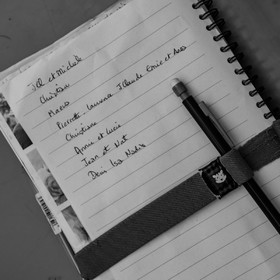 JCl et Michèle
Christian
Mario
Pierrette - Laurence J Claude Emie et Alex
Christiane
Annie et Lucie
Jean et Nat
Deni Isa Nadia